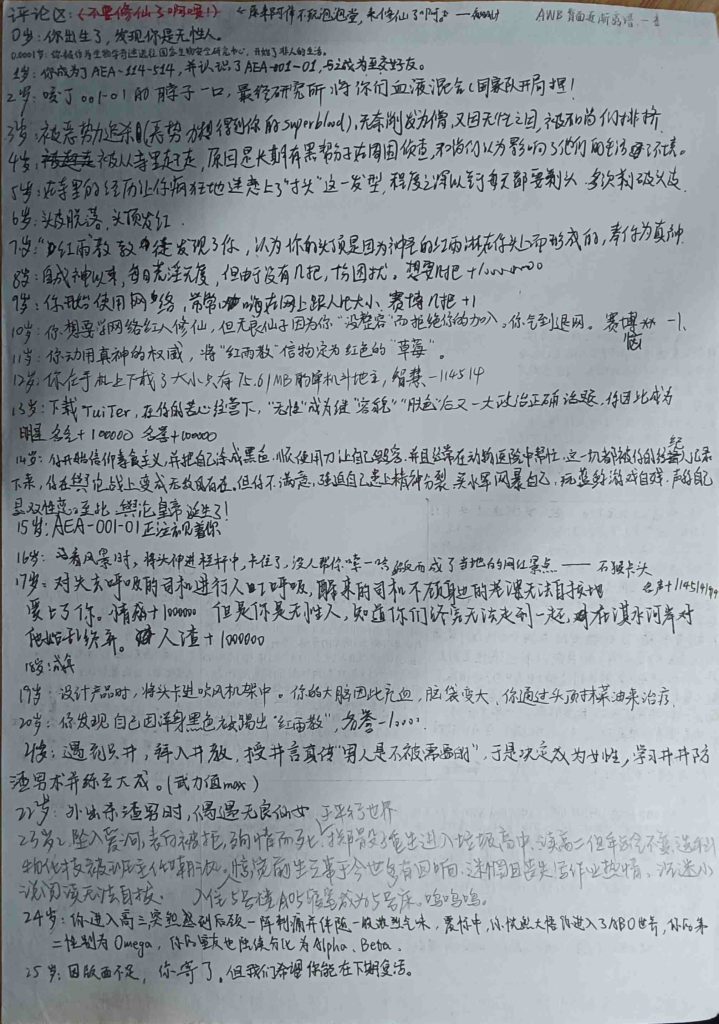 评论区：(不要修仙了啊喂！)
AWB 背面
0岁：你出生了，发现你是无性人。
0.0001岁：你被作为生物学奇迹送往国家生物安全研究中心，开始了非人的生活。
1岁：你成为了AEA-114-514，并认识了AEA-001-01，与之成为至交好友。
2岁：咬了001-01的脖子一口，最终研究所将你们血液混合(国家队开局捏！
3岁：被恶势力追杀(恶势力想得到你的superblood)，无奈剃发为僧，又因无性之因，被和尚们排挤
4岁：被人寺里赶走，原因是长期有黑帮分子在周围侦查，和尚们认为影响了他们的生活
5岁：在寺里的经历让你疯狂地迷恋上了"寸头"这一发型，程度之深以至于每天都要剃头，多次剃破头皮
6岁：头皮脱落，头顶发红
7岁："红雨"教教徒发现了你，认为你的头顶是因为神圣的红雨淋在你头上而形成的，奉你为真神
8岁：自成神以来，每日荒淫无度，但由于没有几把，十分困扰。想要几把+10000000
9岁：你开始使用网络，常常嗨在网上跟人比大小 赛博几把+1
10岁：你想要当网络红人修仙，但无良仙子因为你"没整容"而拒绝你的加入。你气到退网。赛博 -1
11岁：你动用真神的权威，将"红雨教"信物定为红色的"草莓"。
12岁：你在手机上下载了大小只有75.61MB的单机斗地主，智慧-114514
13岁：下载TuiTer，在你的苦心经营下，"无性"成为继"容貌""肤色"后又一大政治正确话题，你因此成为
明星 名气+100000 名誉+100000
14岁：你开始信仰素食主义，并把自己涂成黑色，使用刀让自己毁容，并且经常在动物医院中帮忙，这一切都被你的经纪人记录
下来，你在舆论战上变成无敌的存在。但你不满意，强迫自己患上精神分裂，买水军网暴自己，玩蓝鲸游戏自残，声称自己
是双性恋。至此，舆论皇帝诞生了！
15岁：AEA-001-01正注视着你
16岁：看风景时，将头伸进栏杆中，卡住了，没人帮你，反而成了当地的网红景点——石猴卡头
17岁：对失去呼吸的司机进行人工呼吸，醒来的司机不顾身边的老婆无法自拔地
爱上了你。情商+100000 但是你是无性人，知道你们终究无法走到一起，在淇水河岸对
他始乱终弃。人渣+1000000
18岁：成年
19岁：设计产品时，将头卡进吹风机架中。你的大脑因此充血，脑袋变大，你通过头顶抹菜油来治疗
20岁：你发现自己因浑身黑色被踢出"红雨教"，名誉-10000
21岁：遇到吴井，拜入井教，授井言真传"男人是不被需要的"，于是决定成为女性，学习井井防
渣男术并练至大成。(武力值max)
22岁：外出杀渣男时，偶遇无良仙女 于平行世界
23岁：坠入爱河，表白被拒，殉情而死，重生进入垃圾高中，读高二但年龄不变，选科
物化技被班主任嘲讽，前生三事于今世多有回响，迷惘且丧失写作业热情，沉迷小
说阅读无法自拔。入住5号楼A05宿舍成为5号床，呜呜呜。
24岁：你进入高三突然感到后颈一阵刺痛并伴随一股浓烈气味，震惊中，你恍然大悟你进入了ABO世界，你的第
二性别为Omega，你的室友也陆续分化为Alpha、Beta。
25岁：因版面不足，你寄了，但我们希望你能在下期复活。